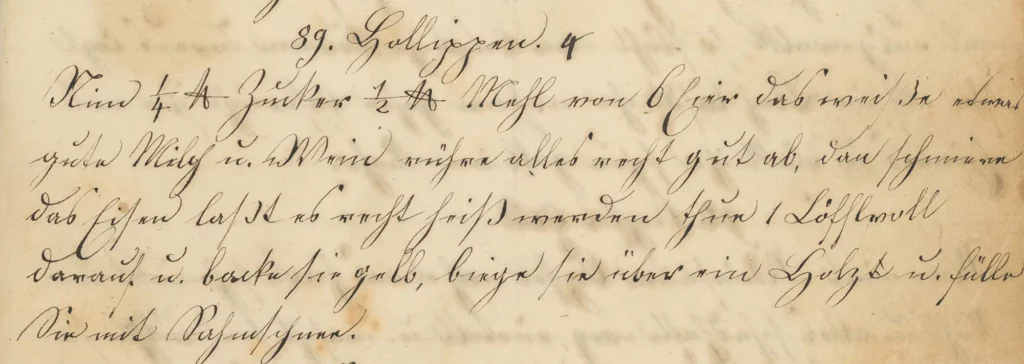 89. Hollippen. 4
Nim 1/4 ℔ Zucker 1/2 ℔ Mehl von 6 Eier das weiße etwas
gute Milch u. Wein rühre alles recht gut ab, dan schmiere
das Eisen laßt es recht heiß werden thue 1 Löfflvoll
darauf u. backe sie gelb, biege sie über ein Holz u. fülle
Sie mit Rahmschnee.